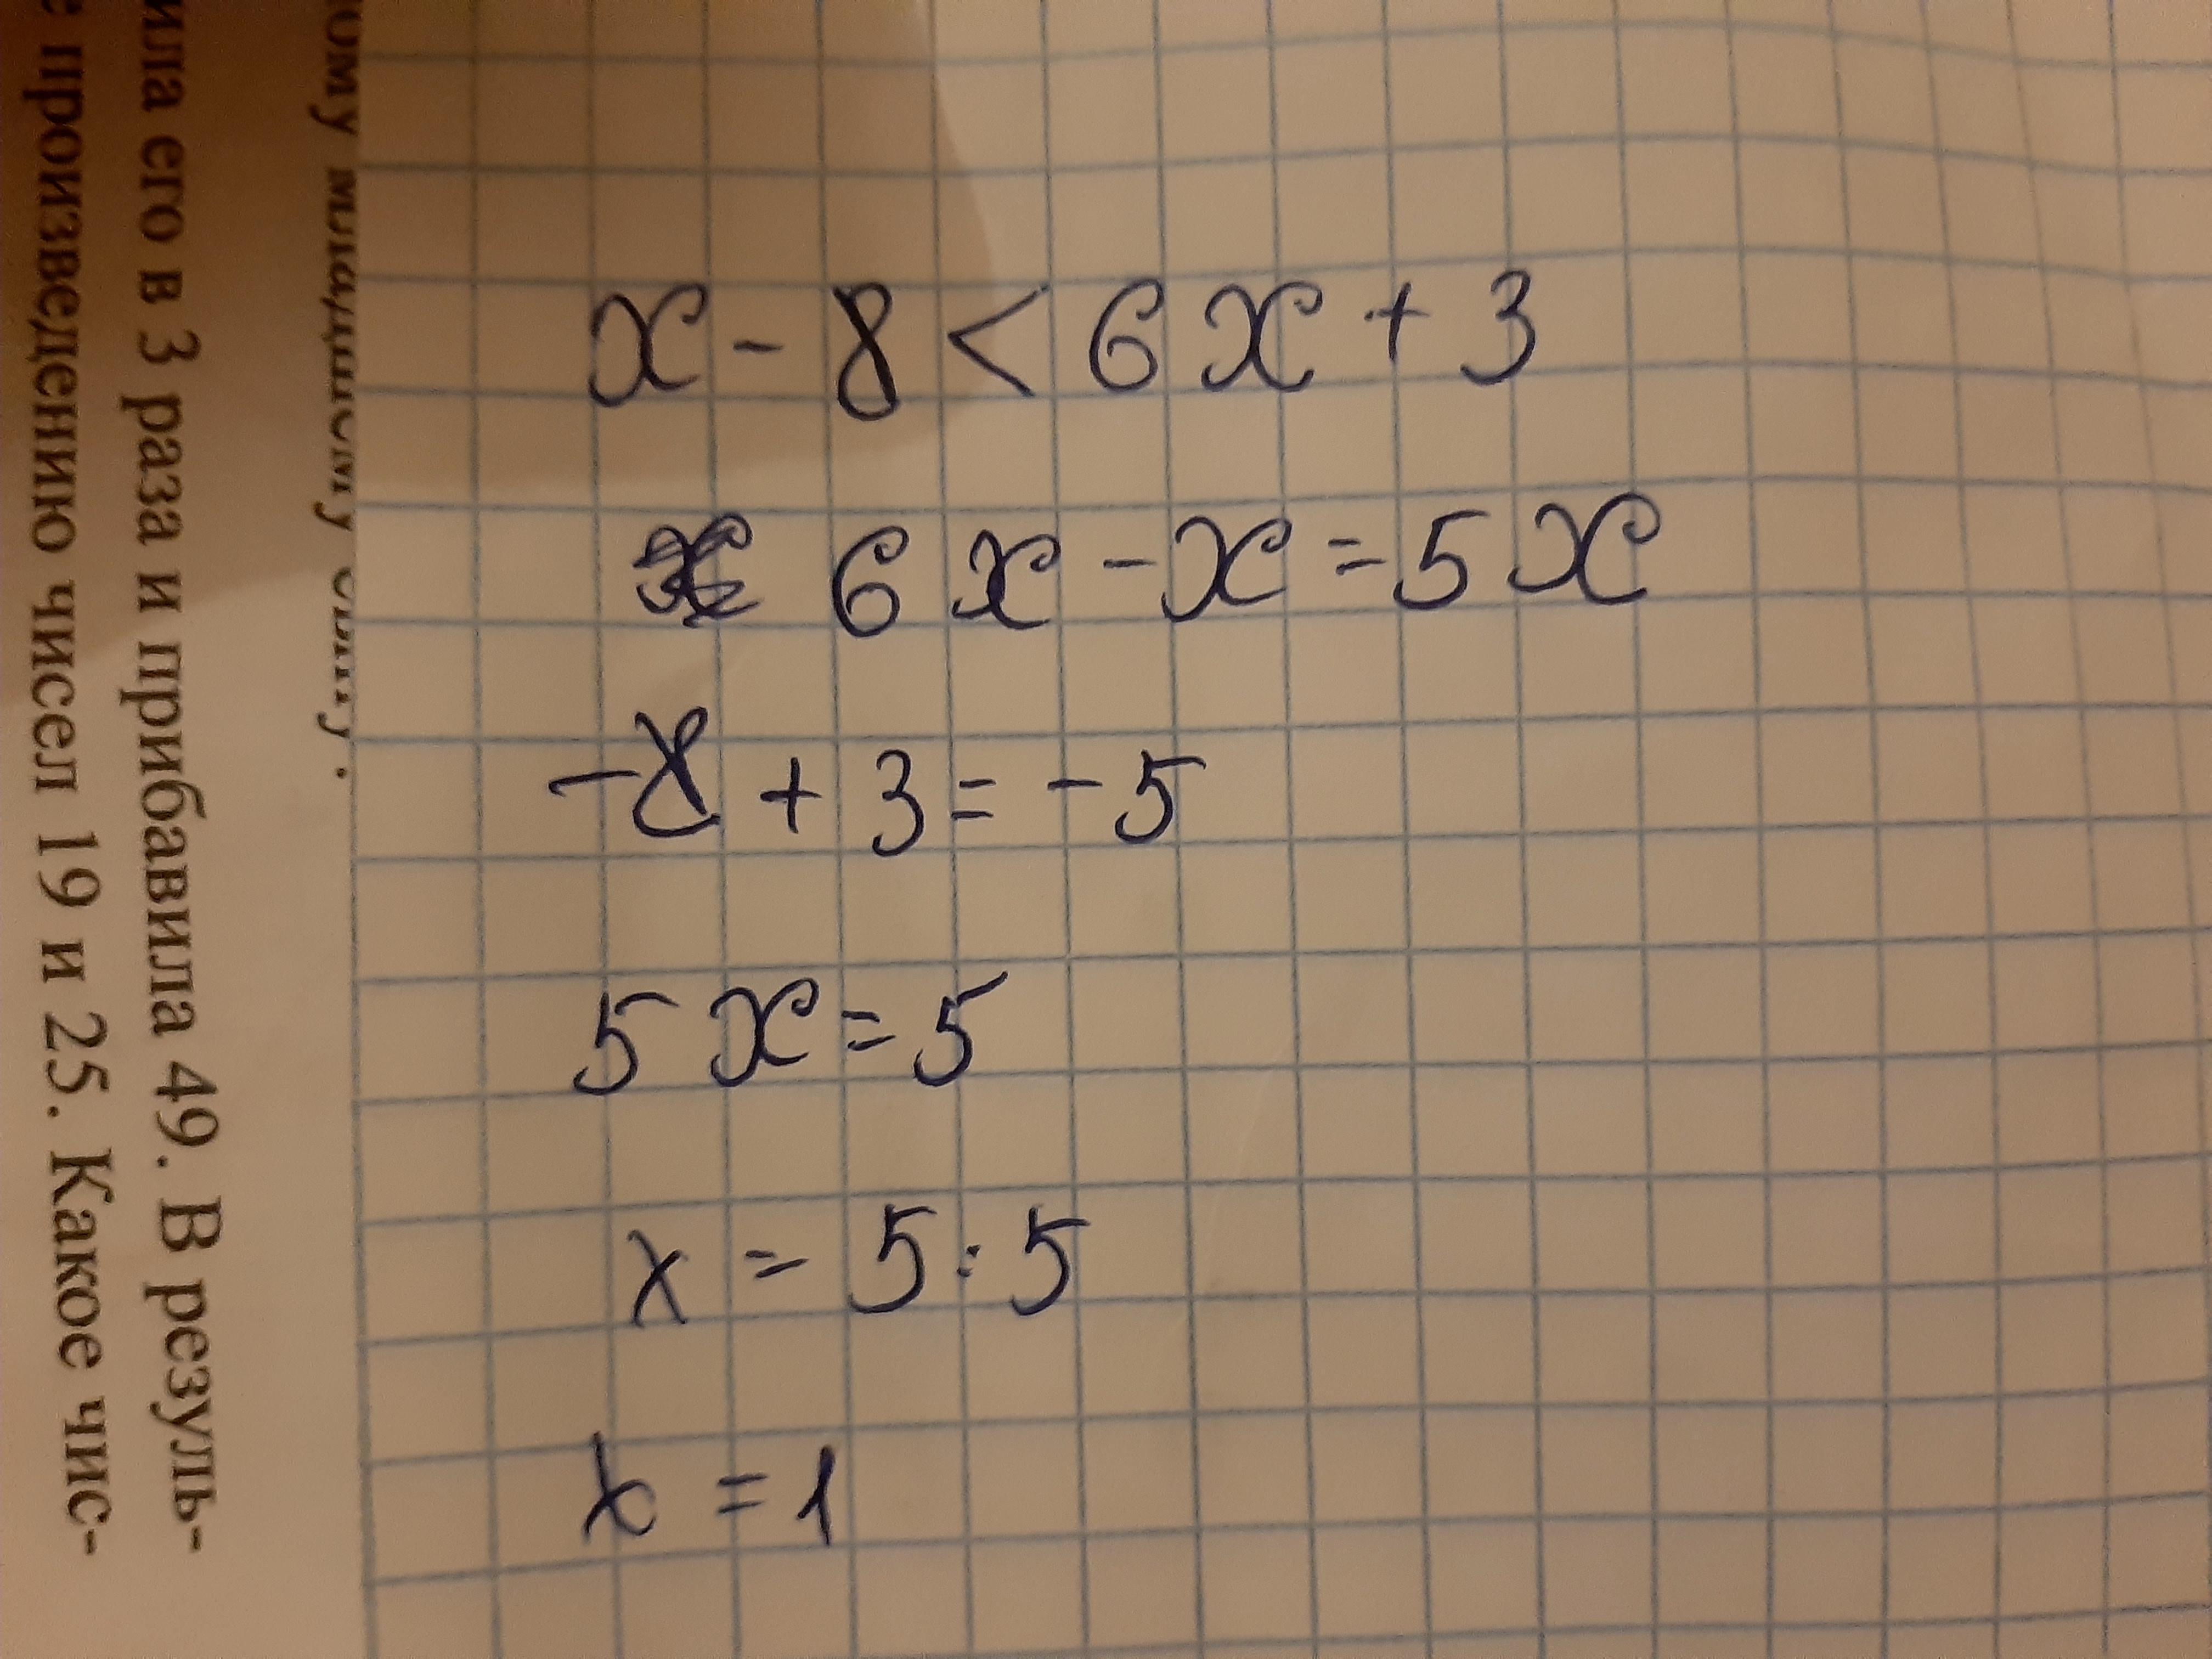 x - 8 < 6x + 3
6x - x = 5x
-8 + 3 = -5
5x = 5
x = 5 : 5
x = 1
ила его в 3 раза и прибавила 49. В резуль-
е произведению чисел 19 и 25. Какое чис-